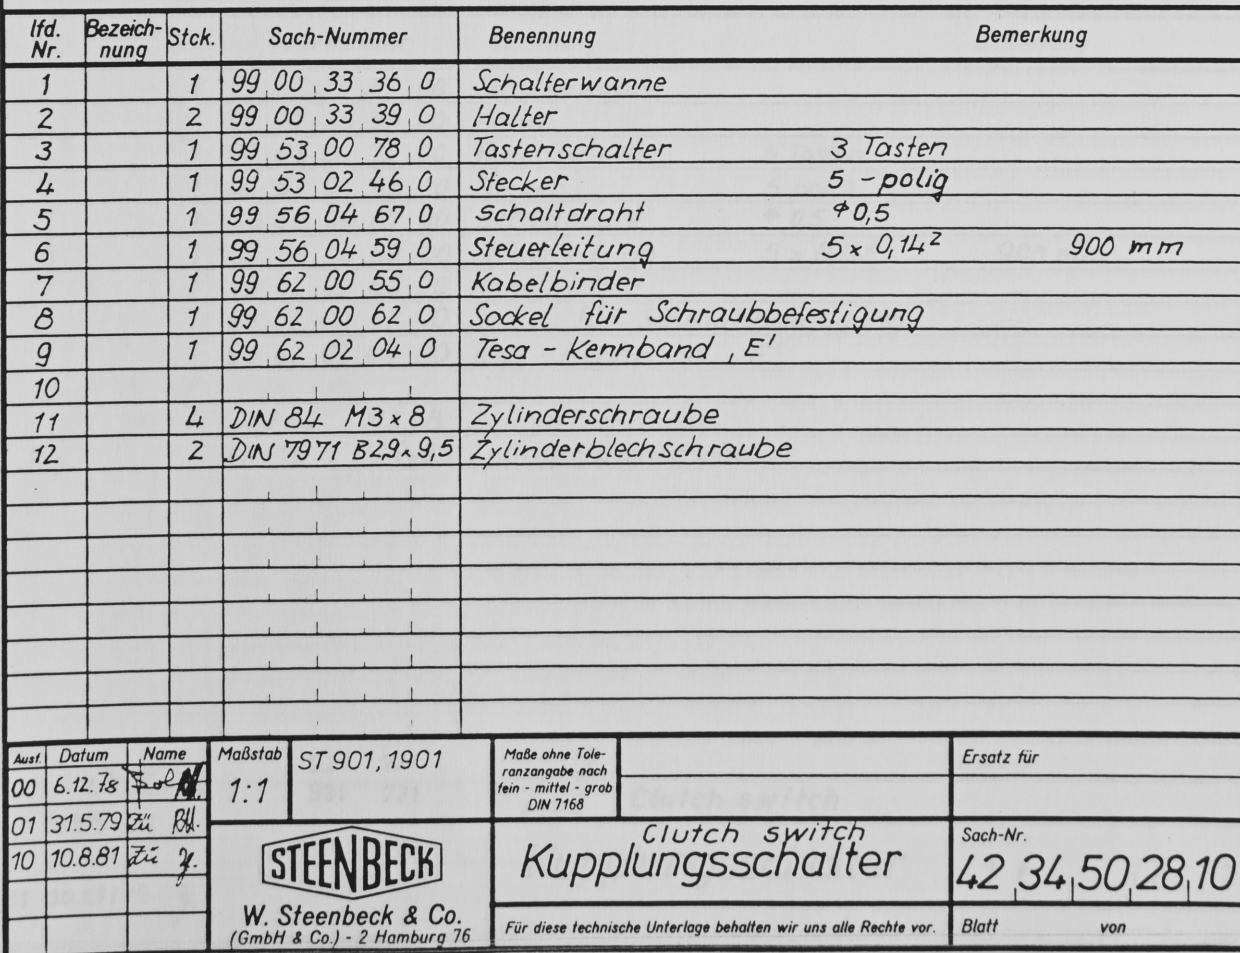 lfd. Nr. Bezeich-nung Stck. Sach-Nummer Benennung Bemerkung
1 1 99 00 33 36 0 Schalterwanne
2 2 99 00 33 39 0 Halter
3 1 99 53 00 78 0 Tastenschalter 3 Tasten
4 1 99 53 02 46 0 Stecker 5-polig
5 1 99 56 04 67 0 Schaltdraht ⌀ 0,5
6 1 99 56 04 59 0 Steuerleitung 5 x 0,14² 900 mm
7 1 99 62 00 55 0 Kabelbinder
8 1 99 62 00 62 0 Sockel für Schraubbefestigung
9 1 99 62 02 04 0 Tesa - Kennband ,E'
10
11 4 DIN 84 M3x8 Zylinderschraube
12 2 DIN 7971 B2,9x9,5 Zylinderblechschraube
Ausf. Datum Name
00 6.12.78
01 31.5.79 Zü
10 10.8.81 Zü
Maßstab
1:1
ST 901, 1901
Maße ohne Tole-
ranzangabe nach
fein - mittel - grob
DIN 7168
Ersatz für
STEENBECK
W. Steenbeck & Co.
(GmbH & Co.) - 2 Hamburg 76
Clutch switch
Kupplungsschalter
Für diese technische Unterlage behalten wir uns alle Rechte vor.
Sach-Nr.
42 34 50 28 10
Blatt von